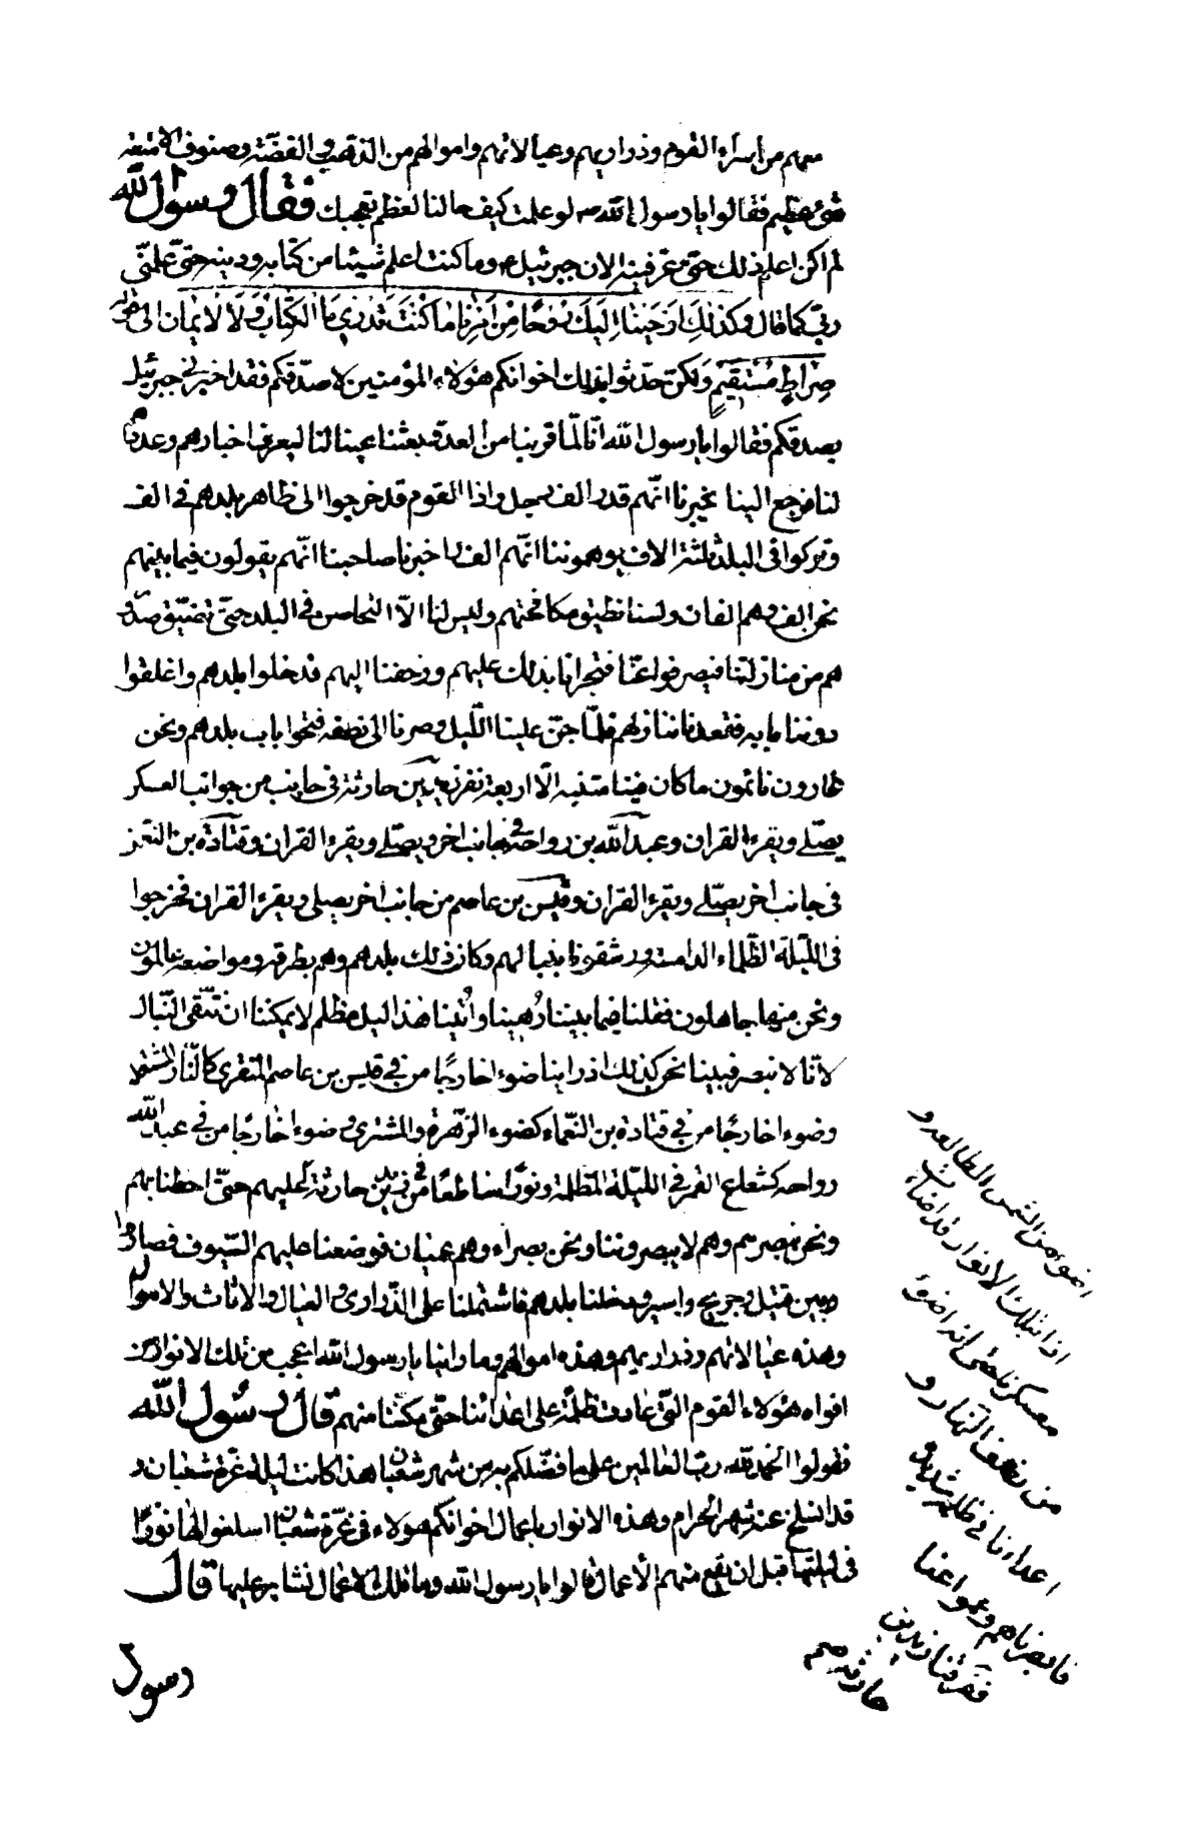 معهم من اسراء القوم وذراريهم وعيالاتهم واموالهم من الذهب والفضّة وصنوف الامتعة
شئ عظيم فقالوا يا رسول الله لو علمت كيف حالنا لعظم تعجبك فقال رسول الله
لم اكن اعلم ذلك حتى عرفنيه الان جبرئيل وما كنت اعلم شيئا من كتابه ودينه حتى علمني
ربي كما قال وكذلك اوحينا اليك روحا من امرنا ما كنت تدري ما الكتاب ولا الايمان الى قوله
صراط مستقيم ولكن حدثوا بذلك اخوانكم هؤلاء المؤمنين لاصدقكم فقد اخبرني جبرئيل
بصدقكم فقالوا يا رسول الله انا لما قربنا من العدو بعثنا عينا لنا ليعرف اخبارهم وعددهم
لنا فرجع الينا يخبرنا انّهم قدر الف رجل واذا القوم قد خرجوا الى ظاهر بلدهم في الف
وتركوا في البلد ثلثة الاف يوهموننا انّهم الف واخبرنا صاحبنا انّهم يقولون فيما بينهم
نحن الف وهم الفان ولسنا نطيق مكافحتهم وليس لنا الّا التحاصن في البلد حتى تضيق صدو
رهم من منازلتنا فينصرفوا عنّا فتجرانا بذلك عليهم وزحفنا اليهم فدخلوا بلدهم واغلقوا
دوننا بابه فقعدنا ننازلهم فلمّا جنّ علينا اللّيل وصرنا الى نصفه فتحوا باب بلدهم ونحن
غارون نائمون ما كان فينا منتبه الّا اربعة نفر زيد بن حارثة في جانب من جوانب العسكر
يصلّي ويقرء القران وعبد الله بن رواحة في جانب اخر يصلّي ويقرء القران وقتادة بن النعمن
في جانب اخر يصلّي ويقرء القران وقيس بن عاصم من جانب اخر يصلي ويقرء القران فخرجوا
في اللّيلة الظّلماء الدامسة ورشقونا بنبالهم وكان ذلك بلدهم وهم بطرقه ومواضعه عالمون
ونحن منها جاهلون فقلنا فيما بيننا دُهينا واُتينا هذا ليل مظلم لا يمكننا ان نتّقي النّبال
لانا لا نبصر فبينا نحن كذلك اذ راينا ضوءا خارجا من في قيس بن عاصم المنقري كالنّار المشتعلة
وضوءا خارجا من في قتادة بن النعمان كضوء الزّهرة والمشتري وضوءا خارجا من في عبد الله
رواحه كشعاع القمر في اللّيلة المظلمة ونورا ساطعا من في زيد بن حارثة عليهم حتّى احطنا بهم
ونحن نبصرهم وهم لا يبصروننا ونحن بصراء وهم عميان فوضعنا عليهم السّيوف فصاروا
بين قتيل وجريح واسير ودخلنا بلدهم فاشتملنا على الذّراري والعيال والاثاث والاموال
وهذه عيالاتهم وذراريهم وهذه اموالهم وما راينا يا رسول الله اعجب من تلك الانوار من
افواه هؤلاء القوم التي عادت ظلمة على اعدائنا حتّى مكّننا منهم قال رسول الله
فقولوا الحمد لله ربّ العالمين على ما فضّلكم به من شهر شعبان هذا كانت ليلة غرّة شعبان و
قد انسلخ عنه شهر الحرام وهذه الانوار باعمال اخوانكم هؤلاء في غرّة شعبان اسلفوا لها نورا
في ليلتها قبل ان يقع منهم الاعمال قالوا يا رسول الله وما تلك الاعمال لنثابر عليها قال
رسول
اضوء من الشمس الطالعة و
اذا تلك الانوار قد اضاءت
معسكرنا حتى انه اضوء
من نصف النهار و
اعداءنا في ظلمة شديدة
فابصرناهم وعموا عنا
ففرقنا زيد بن
حارثة عليهم